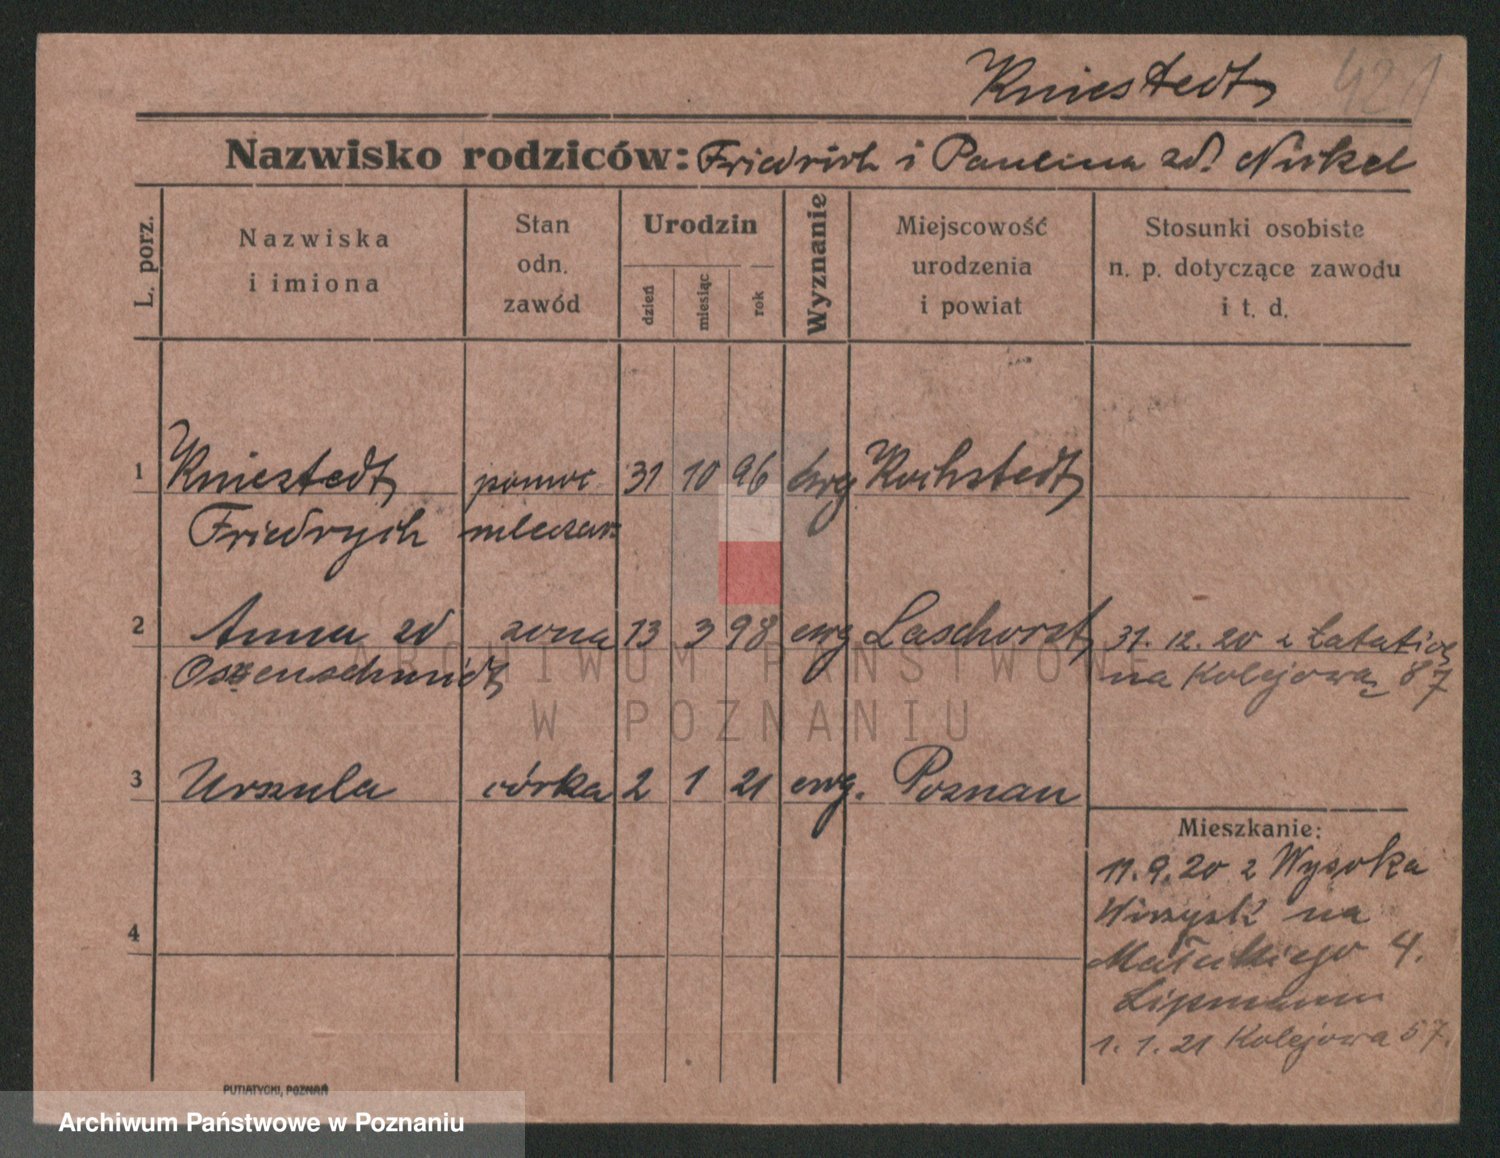 Kniestedt 421
Nazwisko rodziców: Friedrich i Paulina zd. Nickel
L. porz.
Nazwiska
i imiona
Stan
odn.
zawód
Urodzin
dzień
miesiąc
rok
Wyznanie
Miejscowość
urodzenia
i powiat
Stosunki osobiste
n. p. dotyczące zawodu
i t. d.
1 Kniestedt pomoc 31 10 96 ewg Kochstedt
Friedrych mleczar.
2 Anna zd żona 13 3 98 ewg Laschorst 31. 12. 20 z
na Kolejową 87
3 Urszula córka 2 1 21 ewg. Poznan
Mieszkanie:
11. 9. 20 z Wysoka
Wirzysk na
4 4.
Lipmann
1. 1. 21 Kolejowa 57.
PUTIATYCKI, POZNAŃ
ARCHIWUM PAŃSTWOWE
W POZNANIU
Archiwum Państwowe w Poznaniu